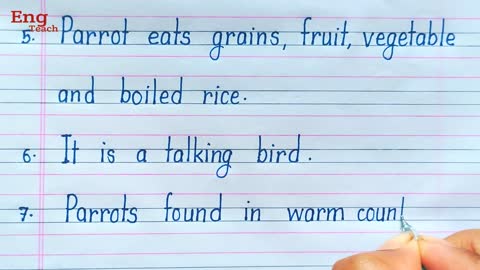 Eng
Teach
5. Parrot eats grains, fruit, vegetable
and boiled rice.
6. It is a talking bird.
7. Parrots found in warm coun